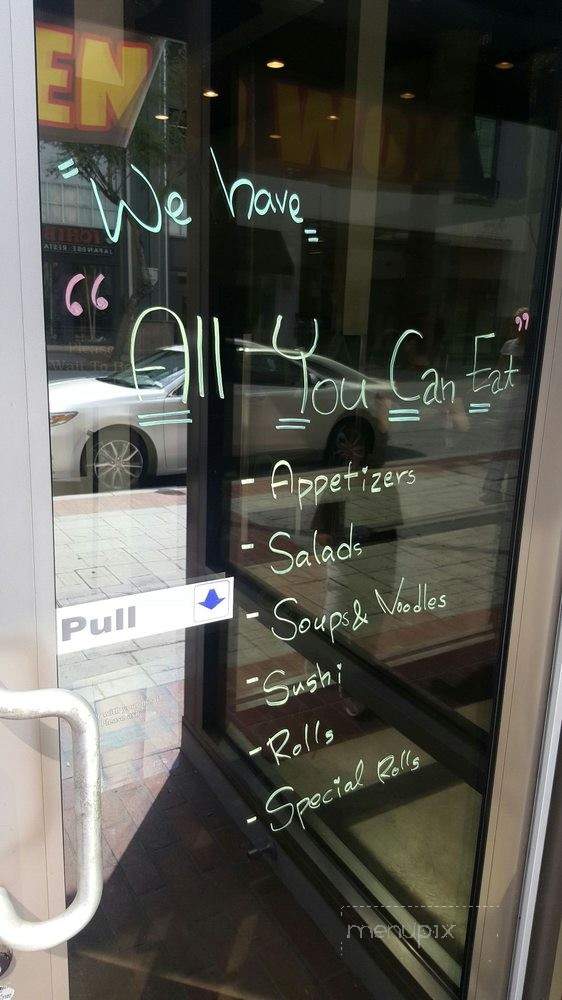 EN
"We have"
TCHIB
JAPANESE RESTA
“All You Can Eat”
- Appetizers
- Salads
- Soups & Noodles
Pull
- Sushi
- Rolls
- Special Rolls
menupix